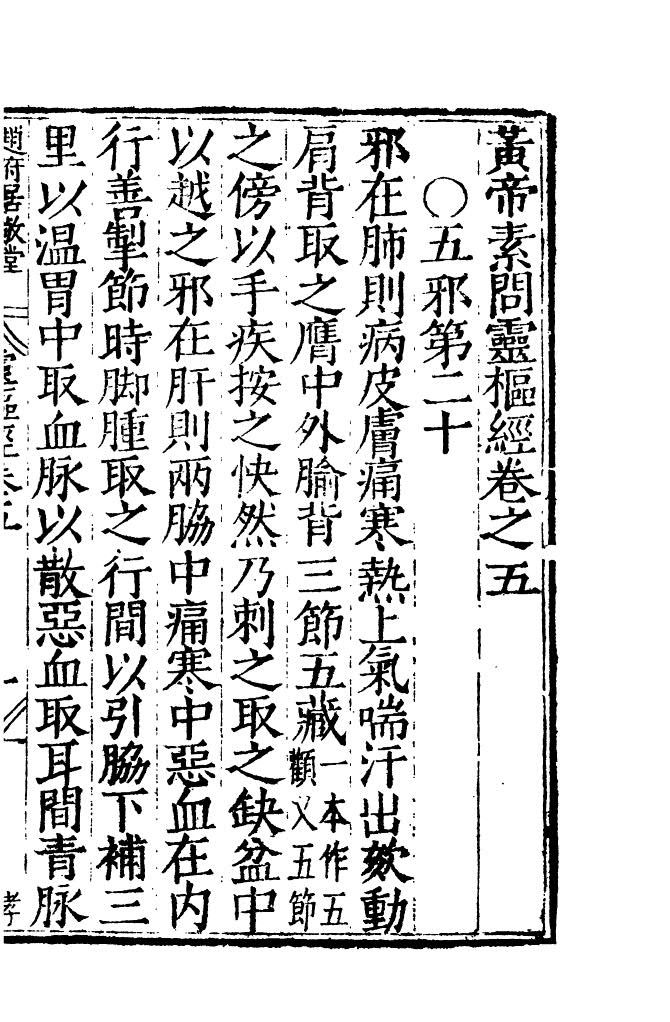 黃帝素問靈樞經卷之五
〇五邪第二十
邪在肺則病皮膚痛寒熱上氣喘汗出欬動
肩背取之膺中外腧背三節五藏一本作五顀又五節
之傍以手疾按之快然乃刺之取之缺盆中
以越之邪在肝則兩脇中痛寒中惡血在內
行善掣節時脚腫取之行間以引脇下補三
里以温胃中取血脉以散惡血取耳間青脉
趙府居敬堂
靈樞經卷五
一
孝